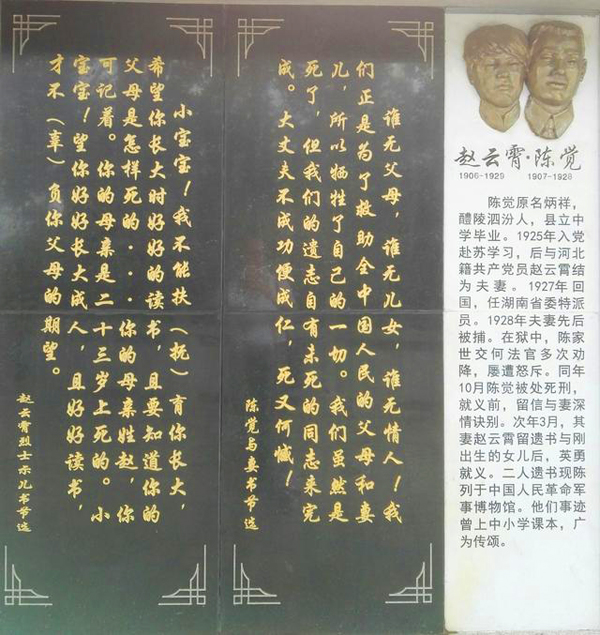 赵云霄·陈觉
1906-1929 1907-1928
陈觉原名炳祥，
醴陵泗汾人，县立中
学毕业。1925年入党
赴苏学习，后与河北
籍共产党员赵云霄结
为夫妻。1927年回
国，任湖南省委特派
员。1928年夫妻先后
被捕。在狱中，陈家
世交何法官多次劝
降，屡遭怒斥。同年
10月陈觉被处死刑，
就义前，留信与妻深
情诀别。次年3月，其
妻赵云霄留遗书与刚
出生的女儿后，英勇
就义。二人遗书现陈
列于中国人民革命军
事博物馆。他们事迹
曾上中小学课本，广
为传颂。
谁无父母，谁无儿女，谁无情人！我
们正是为了救助全中国人民的父母和妻
儿，所以牺牲了自己的一切。我们虽然是
死了，但我们的遗志自有未死的同志来完
成。大丈夫不成功便成仁，死又何憾！
陈觉与妻书节选
小宝宝！我不能扶（抚）育你长大，
希望你长大时好好的读书，且要知道你的
父母是怎样死的....你的母亲姓赵，你
可记着。你的母亲是二十三岁上死的。小
宝宝！望你好好长大成人，且好好读书，
才不（辜）负你父母的期望。
赵云霄烈士示儿书节选